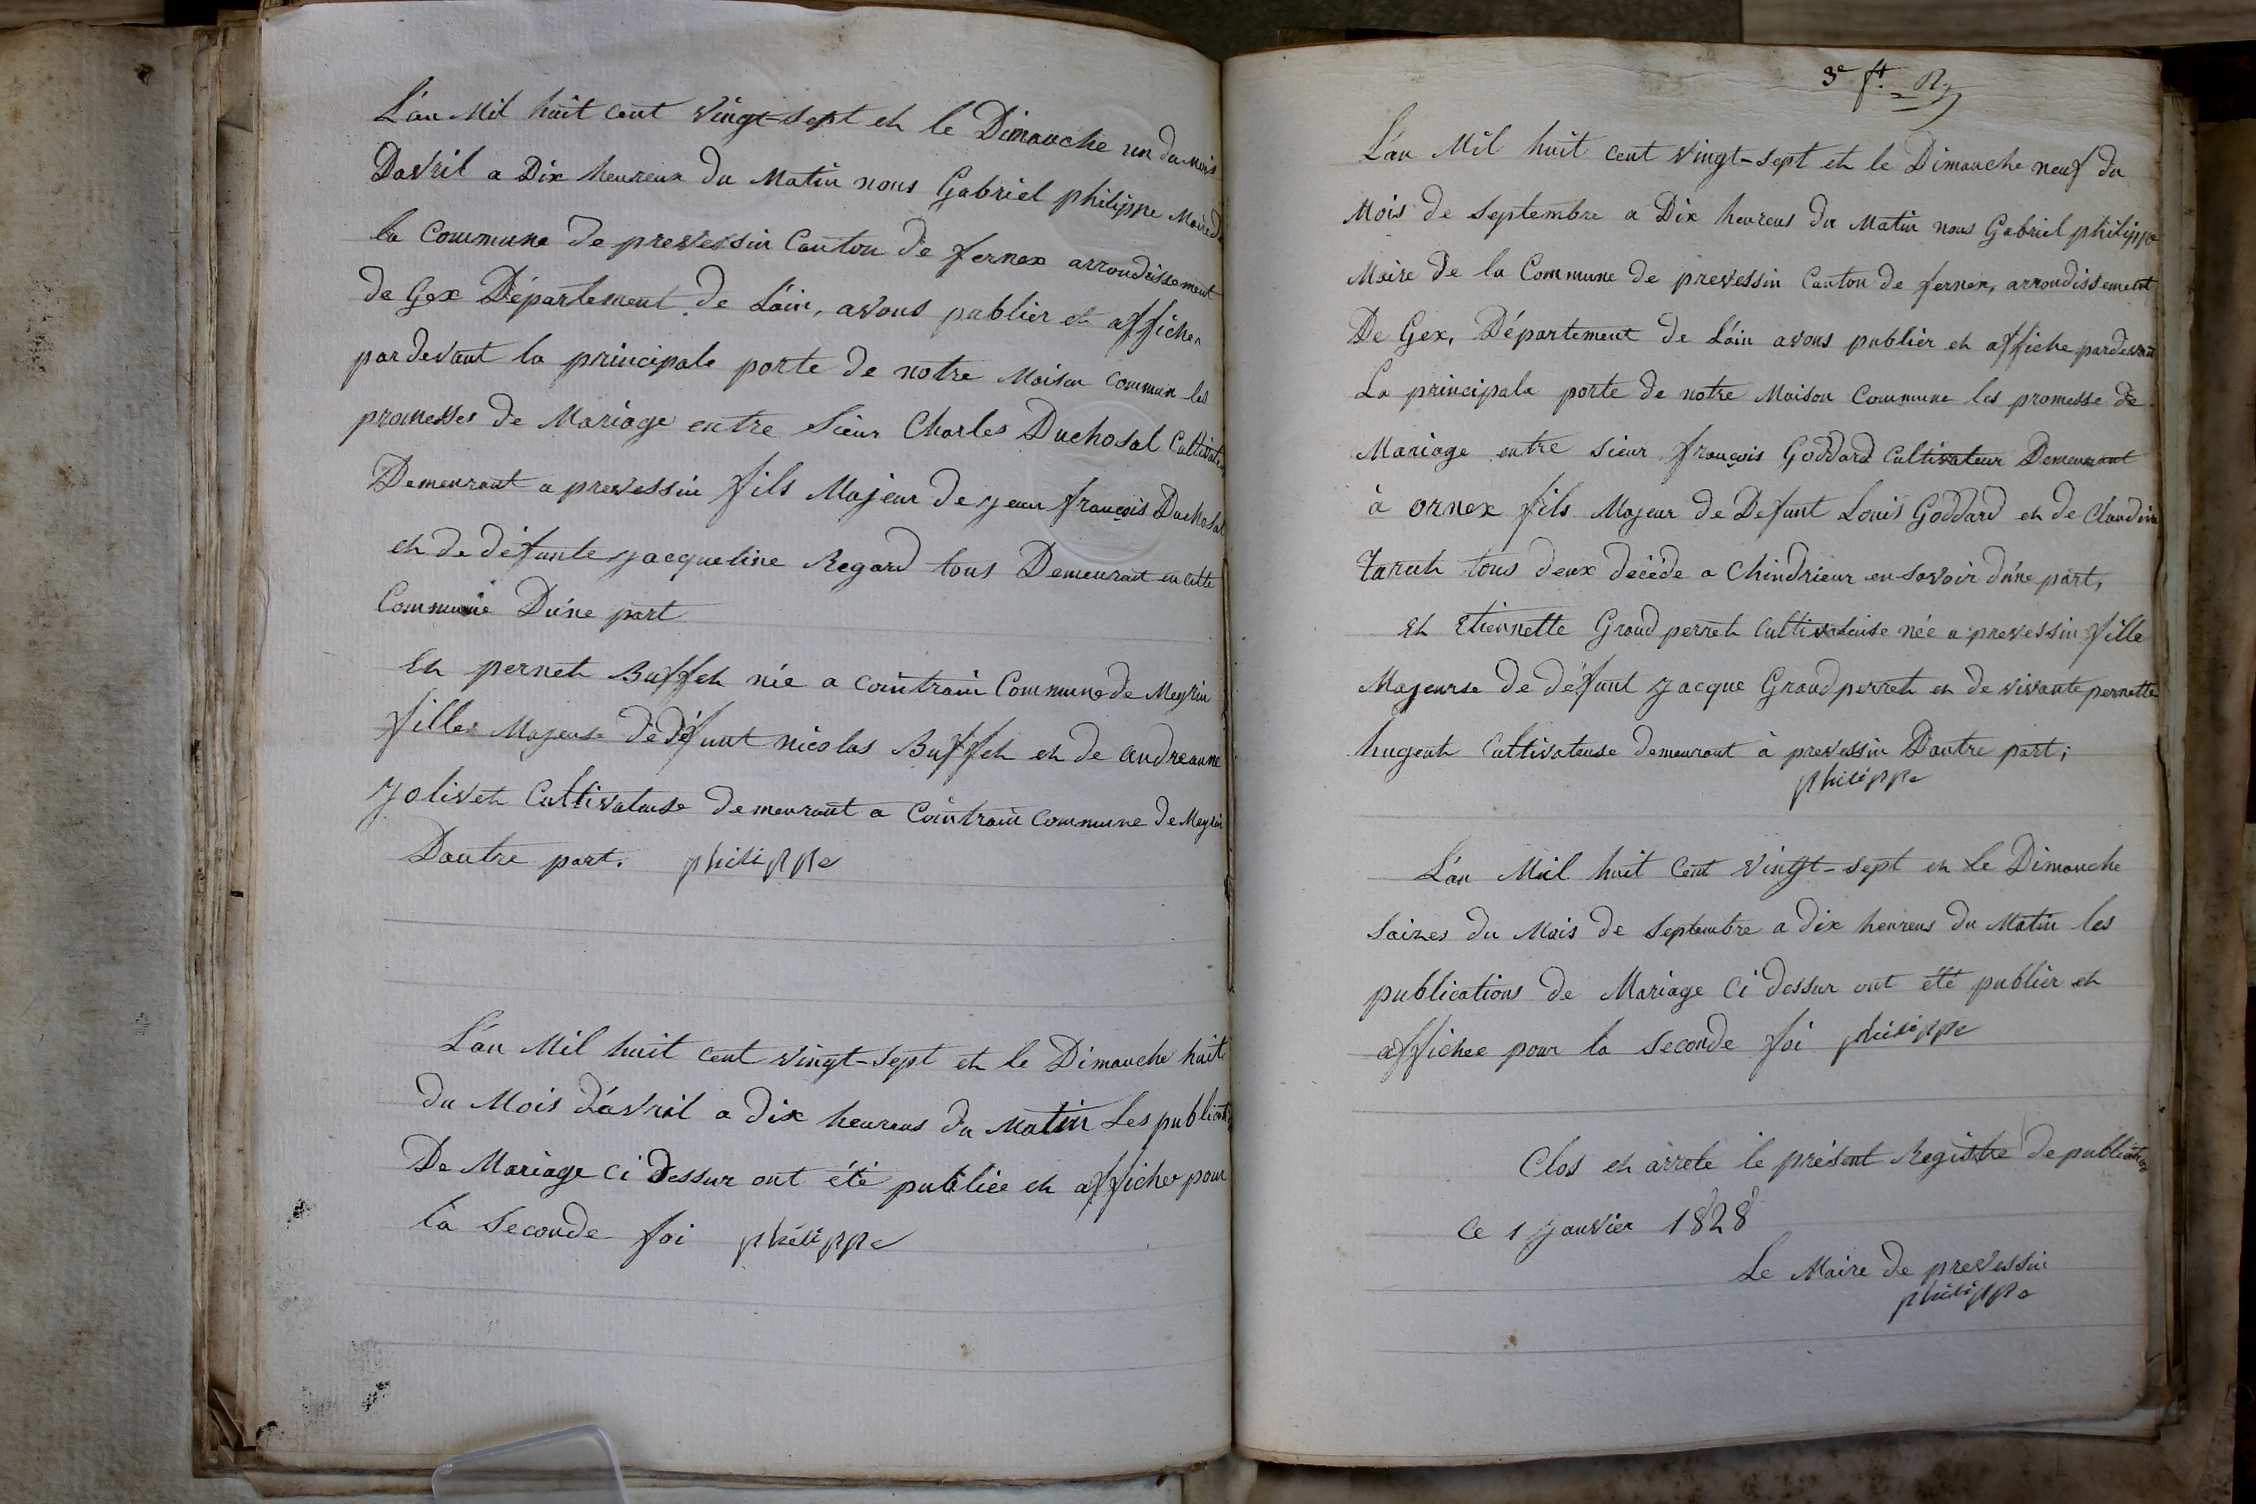 L'an Mil huit cent vingt-sept et le Dimanche un du Mois
Davril a Dix heureux du Matin nous Gabriel philippe Maire de
la Commune de prevessin Canton de fernex arrondissement
de Gex Département de L'ain, avons publier et afficher
pardevant la principale porte de notre Maison commun les
promesses de Mariage entre Sieur Charles Duchosal Cultivateur
Demeurant a prevessin fils Majeur de jean françois Duchosal
et de défunte jacqueline Regard tous Demeurant en cette
Commune D'une part
Et pernet Buffet née a Cointrain Commune de Meyrin
filler Majeuse de défunt nicolas Buffet et de andreanne
jolivet Cultivateuse demeurant a Cointrain commune de Meyrin
Dautre part. philippe
L'an Mil huit cent vingt-sept et le Dimanche huit
du Mois d'avril a dix heureus du Matin Les publications
De Mariage ci dessur ont été publiée et afficher pour
la Seconde foi philippe
3e ft. R.
L'an Mil huit cent vingt-sept et le Dimanche neuf du
Mois de Septembre a Dix heureus du Matin nous Gabriel philippe
Maire de la Commune de prevessin Canton de fernex, arrondissement
De Gex, Département de L'ain avons publier et affiche pardevant
La principale porte de notre Maison Commune les promesse de
Mariage entre sieur françois Goddard Cultivateur Demeurant
à ornex fils Majeur de Defunt Louis Goddard et de Claudine
tous deux décéde a Chindrieux en savoir d'une part,
et Etiennette Grand perret cultivateuse née a prevessin fille
Majeurse de défunt jacque Grandperret et de vivante pernette
hugent Cultivateuse demeurant à prevessin Dautre part;
philippe
L'an Mil huit Cent vingt-sept et le Dimanche
Saizes du Mois de Septembre a dix heureus du Matin les
publications de Mariage Ci dessur ont été publier et
affichee pour la seconde foi philippe
Clos et arrete le présent Registre de publication
Ce 1 janvier 1828
Le Maire de prevessin
philippe